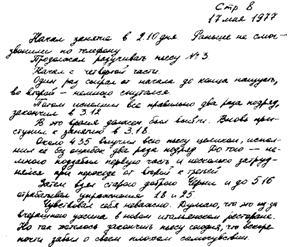 Стр. 8
17 мая 1977
Начал занятие в 2.10 дня. Раньше не смог
звонили по телефону
Продолжал разучивать пьесу № 3.
Начал с четвертой части
Один раз сыграл от начала до конца наизусть,
во второй – немного спутался.
Потом исполнил все правильно два раза подряд,
закончив в 3.12
В это время должен был выйти. Вновь прис-
тупил к занятию в 3.18.
Около 4.35 выучил всю пьесу целиком, испол-
нил ее без ошибок два раза подряд. До того – не-
много подзабыл первую часть и несколько затруд-
нялся при переходе от второй к третьей
Затем взял старого доброго Черни и до 5.16
отрабатывал упражнения 18 и 25
Чувствовал себя неважно. Думаю, что из-за
вчерашнего ужина в новом итальянском ресторане.
Но так хотелось закончить пьесу скорей, что вскоре
почти забыл о своем плохом самочувствии.